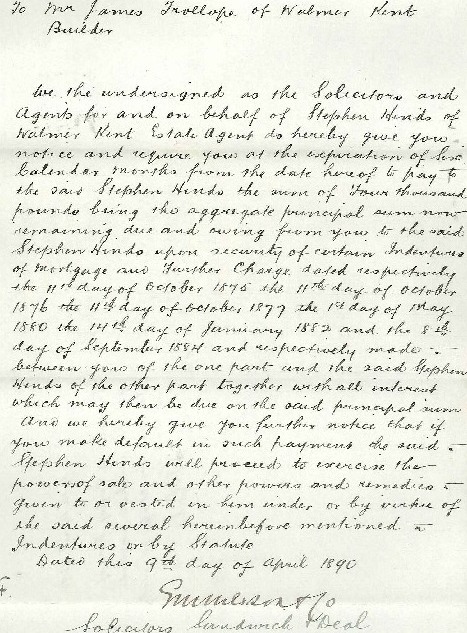 To Mr James Trollope of Walmer Kent
Builder
We the undersigned as the Solicitors and
Agents for and on behalf of Stephen Hinds of
Walmer Kent Estate Agent do hereby give you
notice and require you at the expiration of Six
Calendar months from the date hereof to pay to
the said Stephen Hinds the sum of Four thousand
pounds being the aggregate principal sum now
remaining due and owing from you to the said
Stephen Hinds upon security of certain Indentures
of Mortgage and Further Charge dated respectively
the 11th day of October 1875 the 11th day of October
1876 the 11th day of October 1877 the 1st day of May
1880 the 14th day of January 1882 and the 8th
day of September 1884 and respectively made
between you of the one part and the said Stephen
Hinds of the other part together with all interest
which may then be due on the said principal sum
And we hereby give you further notice that if
you make default in such payment the said
Stephen Hinds will proceed to exercise the
powers of sale and other powers and remedies
given to or vested in him under or by virtue of
the said several hereinbefore mentioned
Indentures or by Statute
Dated this 9th day of April 1890
Solicitors Sandwich & Deal